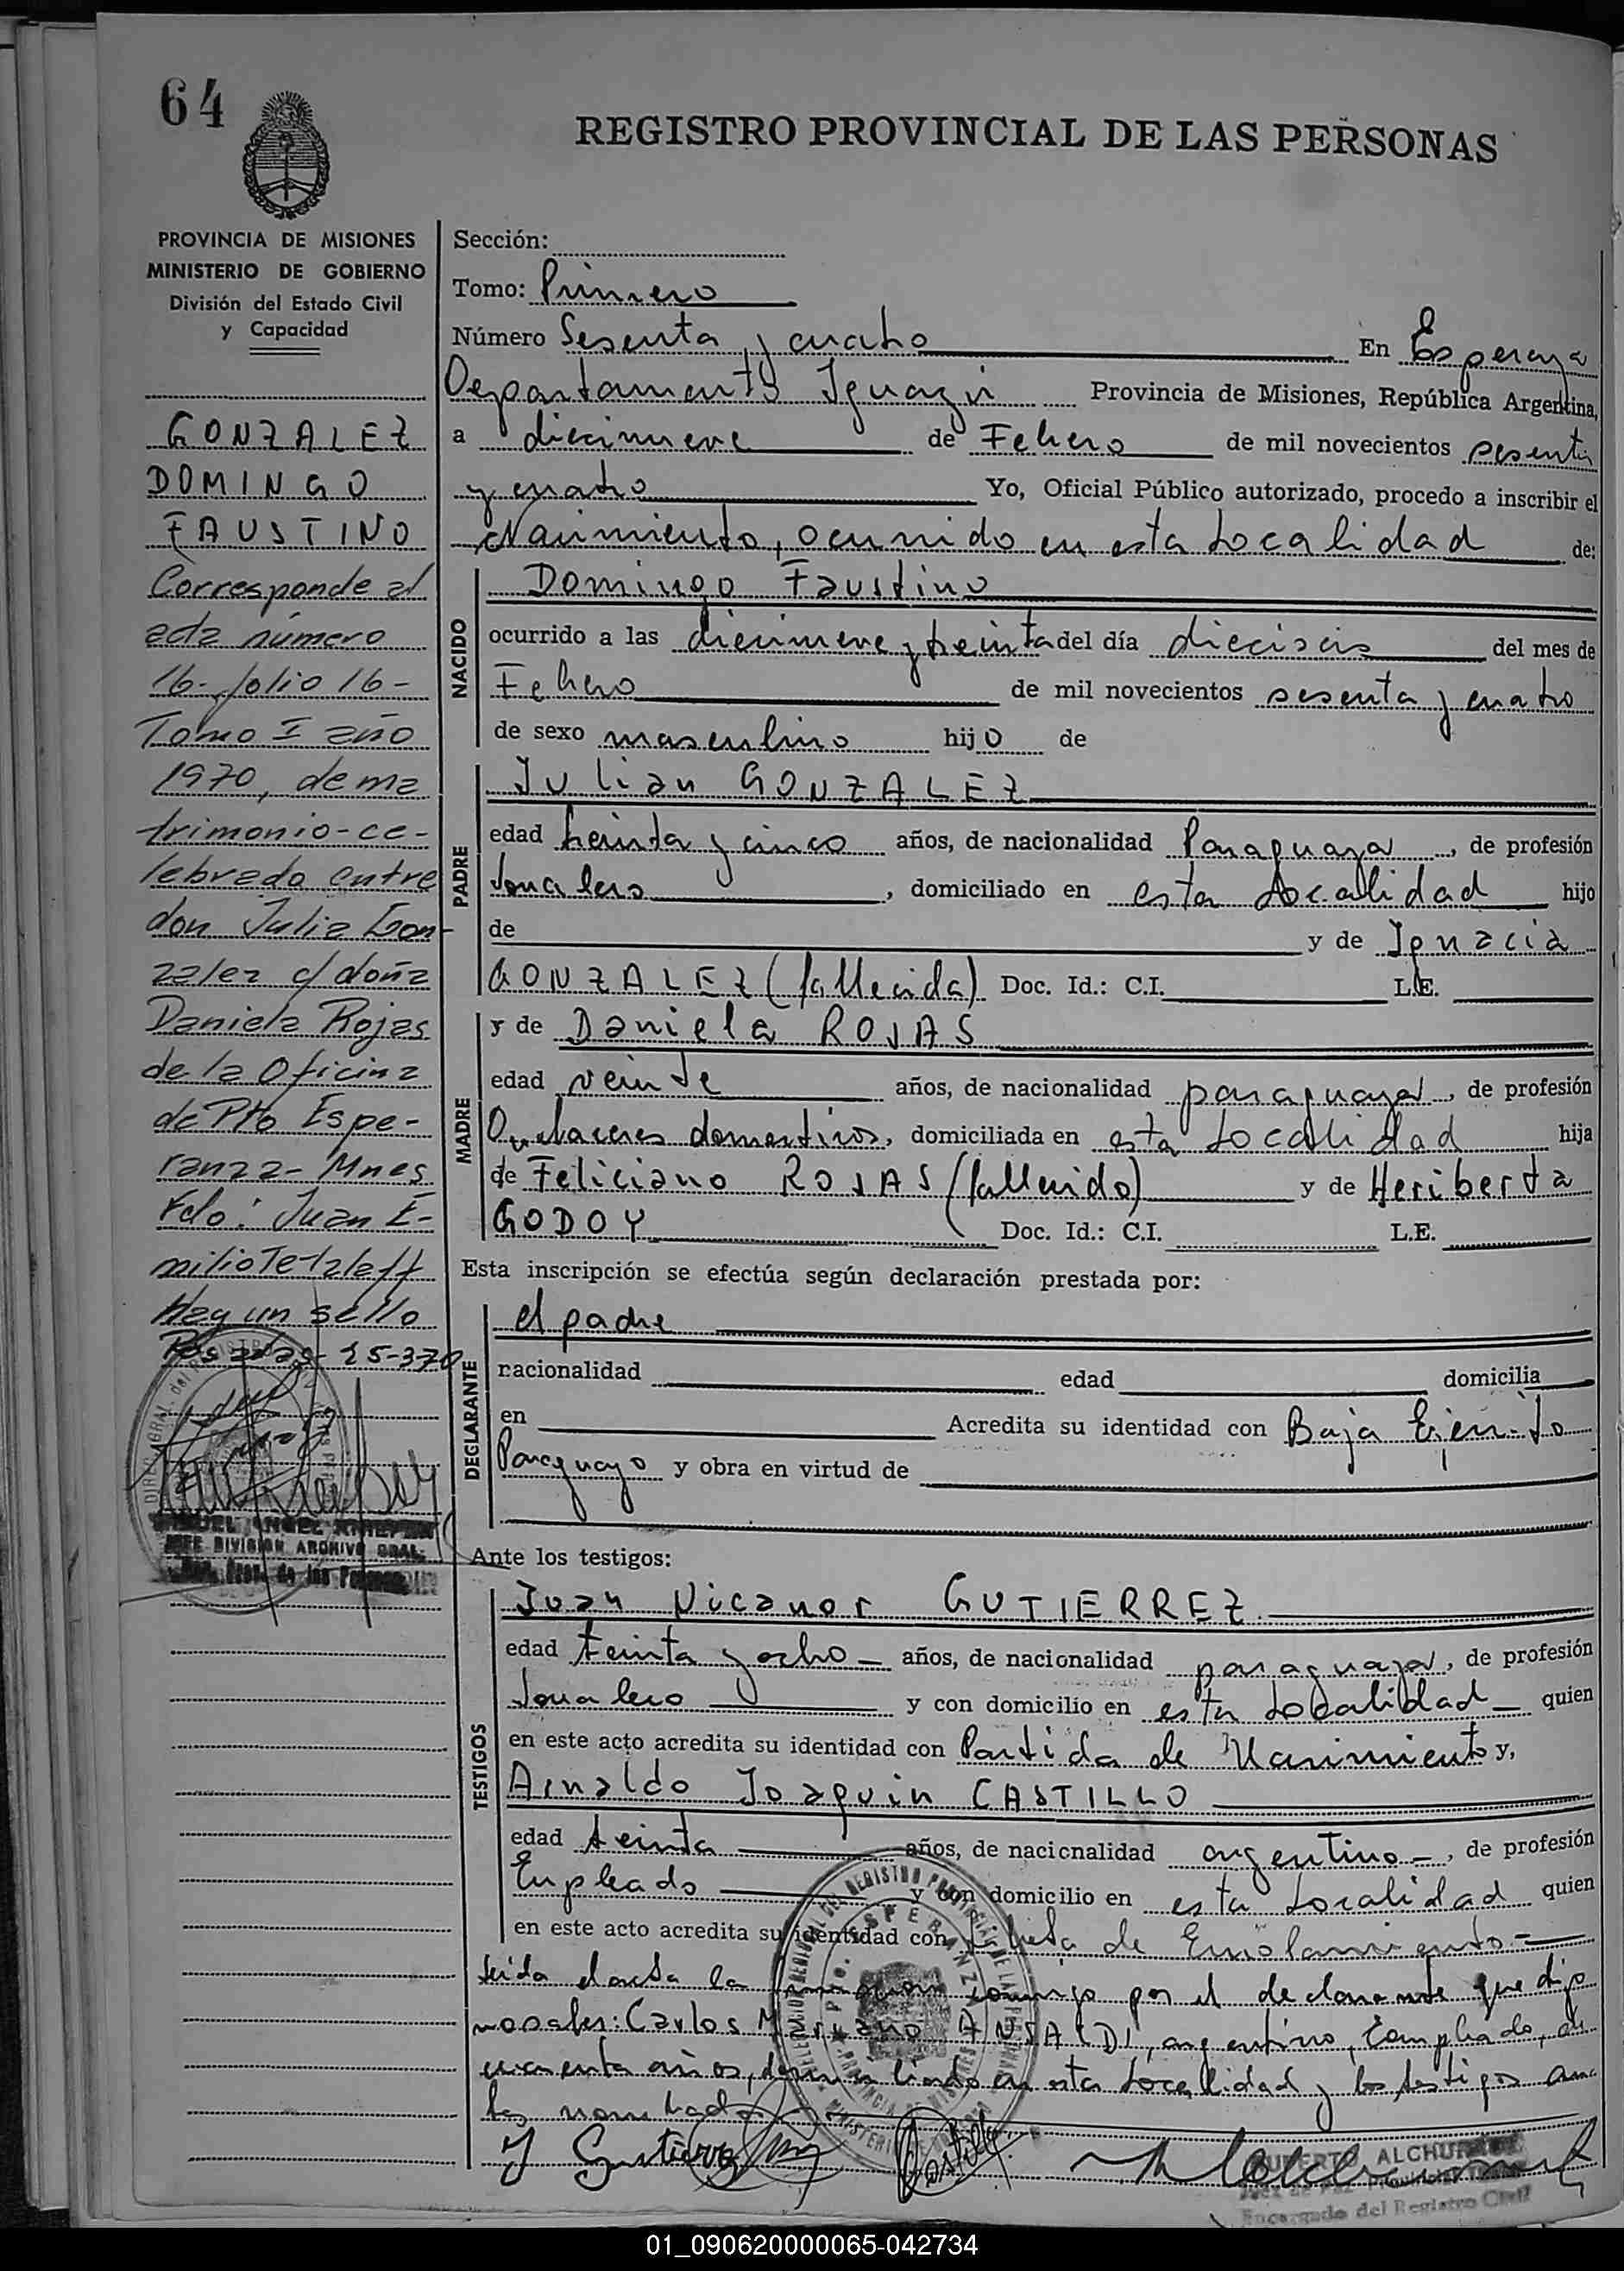 64
REGISTRO PROVINCIAL DE LAS PERSONAS
PROVINCIA DE MISIONES
MINISTERIO DE GOBIERNO
División del Estado Civil
y Capacidad
GONZALEZ
DOMINGO
FAUSTINO
Corresponde al
acta número
16- folio 16-
Tomo I año
1970, de ma
trimonio-ce-
lebrado entre
don Julia Gon-
zalez c/ doña
Daniela Rojas
de la Oficina
de Pto Espe-
ranza- Mnes
Fdo: Juan E-
milio Tetzlaff
Hay un sello
Posadas- 25-370
JEFE DIVISION ARCHIVO GRAL.
Sección:
Tomo: Primero
Número Sesenta y cuatro En Esperanza
Departamento Iguazú Provincia de Misiones, República Argentina,
a diecinueve de Febrero de mil novecientos sesenta
y cuatro Yo, Oficial Público autorizado, procedo a inscribir el
Nacimiento, ocurrido en esta Localidad de:
NACIDO
Domingo Faustino
ocurrido a las diecinueve y treinta del día dieciseis del mes de
Febrero de mil novecientos sesenta y cuatro
de sexo masculino hijo de
PADRE
Julian GONZALEZ
edad treinta y cinco años, de nacionalidad Paraguaya, de profesión
Jornalero, domiciliado en esta Localidad hijo
de y de Ignacia
GONZALEZ (fallecida) Doc. Id.: C.I. L.E.
MADRE
y de Daniela ROJAS
edad veinte años, de nacionalidad paraguaya, de profesión
Quehaceres domesticos, domiciliada en esta Localidad hija
de Feliciano ROJAS (fallecido) y de Heriberta
GODOY Doc. Id.: C.I. L.E.
Esta inscripción se efectúa según declaración prestada por:
DECLARANTE
el padre
nacionalidad edad domicilia
en Acredita su identidad con Baja Ejercito
Paraguayo y obra en virtud de
Ante los testigos:
TESTIGOS
Juan Nicanor GUTIERREZ
edad treinta y ocho años, de nacionalidad paraguaya, de profesión
Jornalero y con domicilio en esta Localidad quien
en este acto acredita su identidad con Partida de Nacimiento y,
Arnaldo Joaquin CASTILLO
edad treinta años, de nacionalidad argentino, de profesión
Empleado y con domicilio en esta Localidad quien
en este acto acredita su identidad con Libreta de Enrolamiento
Leida el acta la conmigo por el declarante que dijo
no saber: Carlos Mariano ANSALDI, argentino, Empleado, de
cuarenta años, domiciliado en esta Localidad y los testigos an-
tes nombrados
J Gutierrez
Castillo
Encargado del Registro Civil
01_090620000065-042734